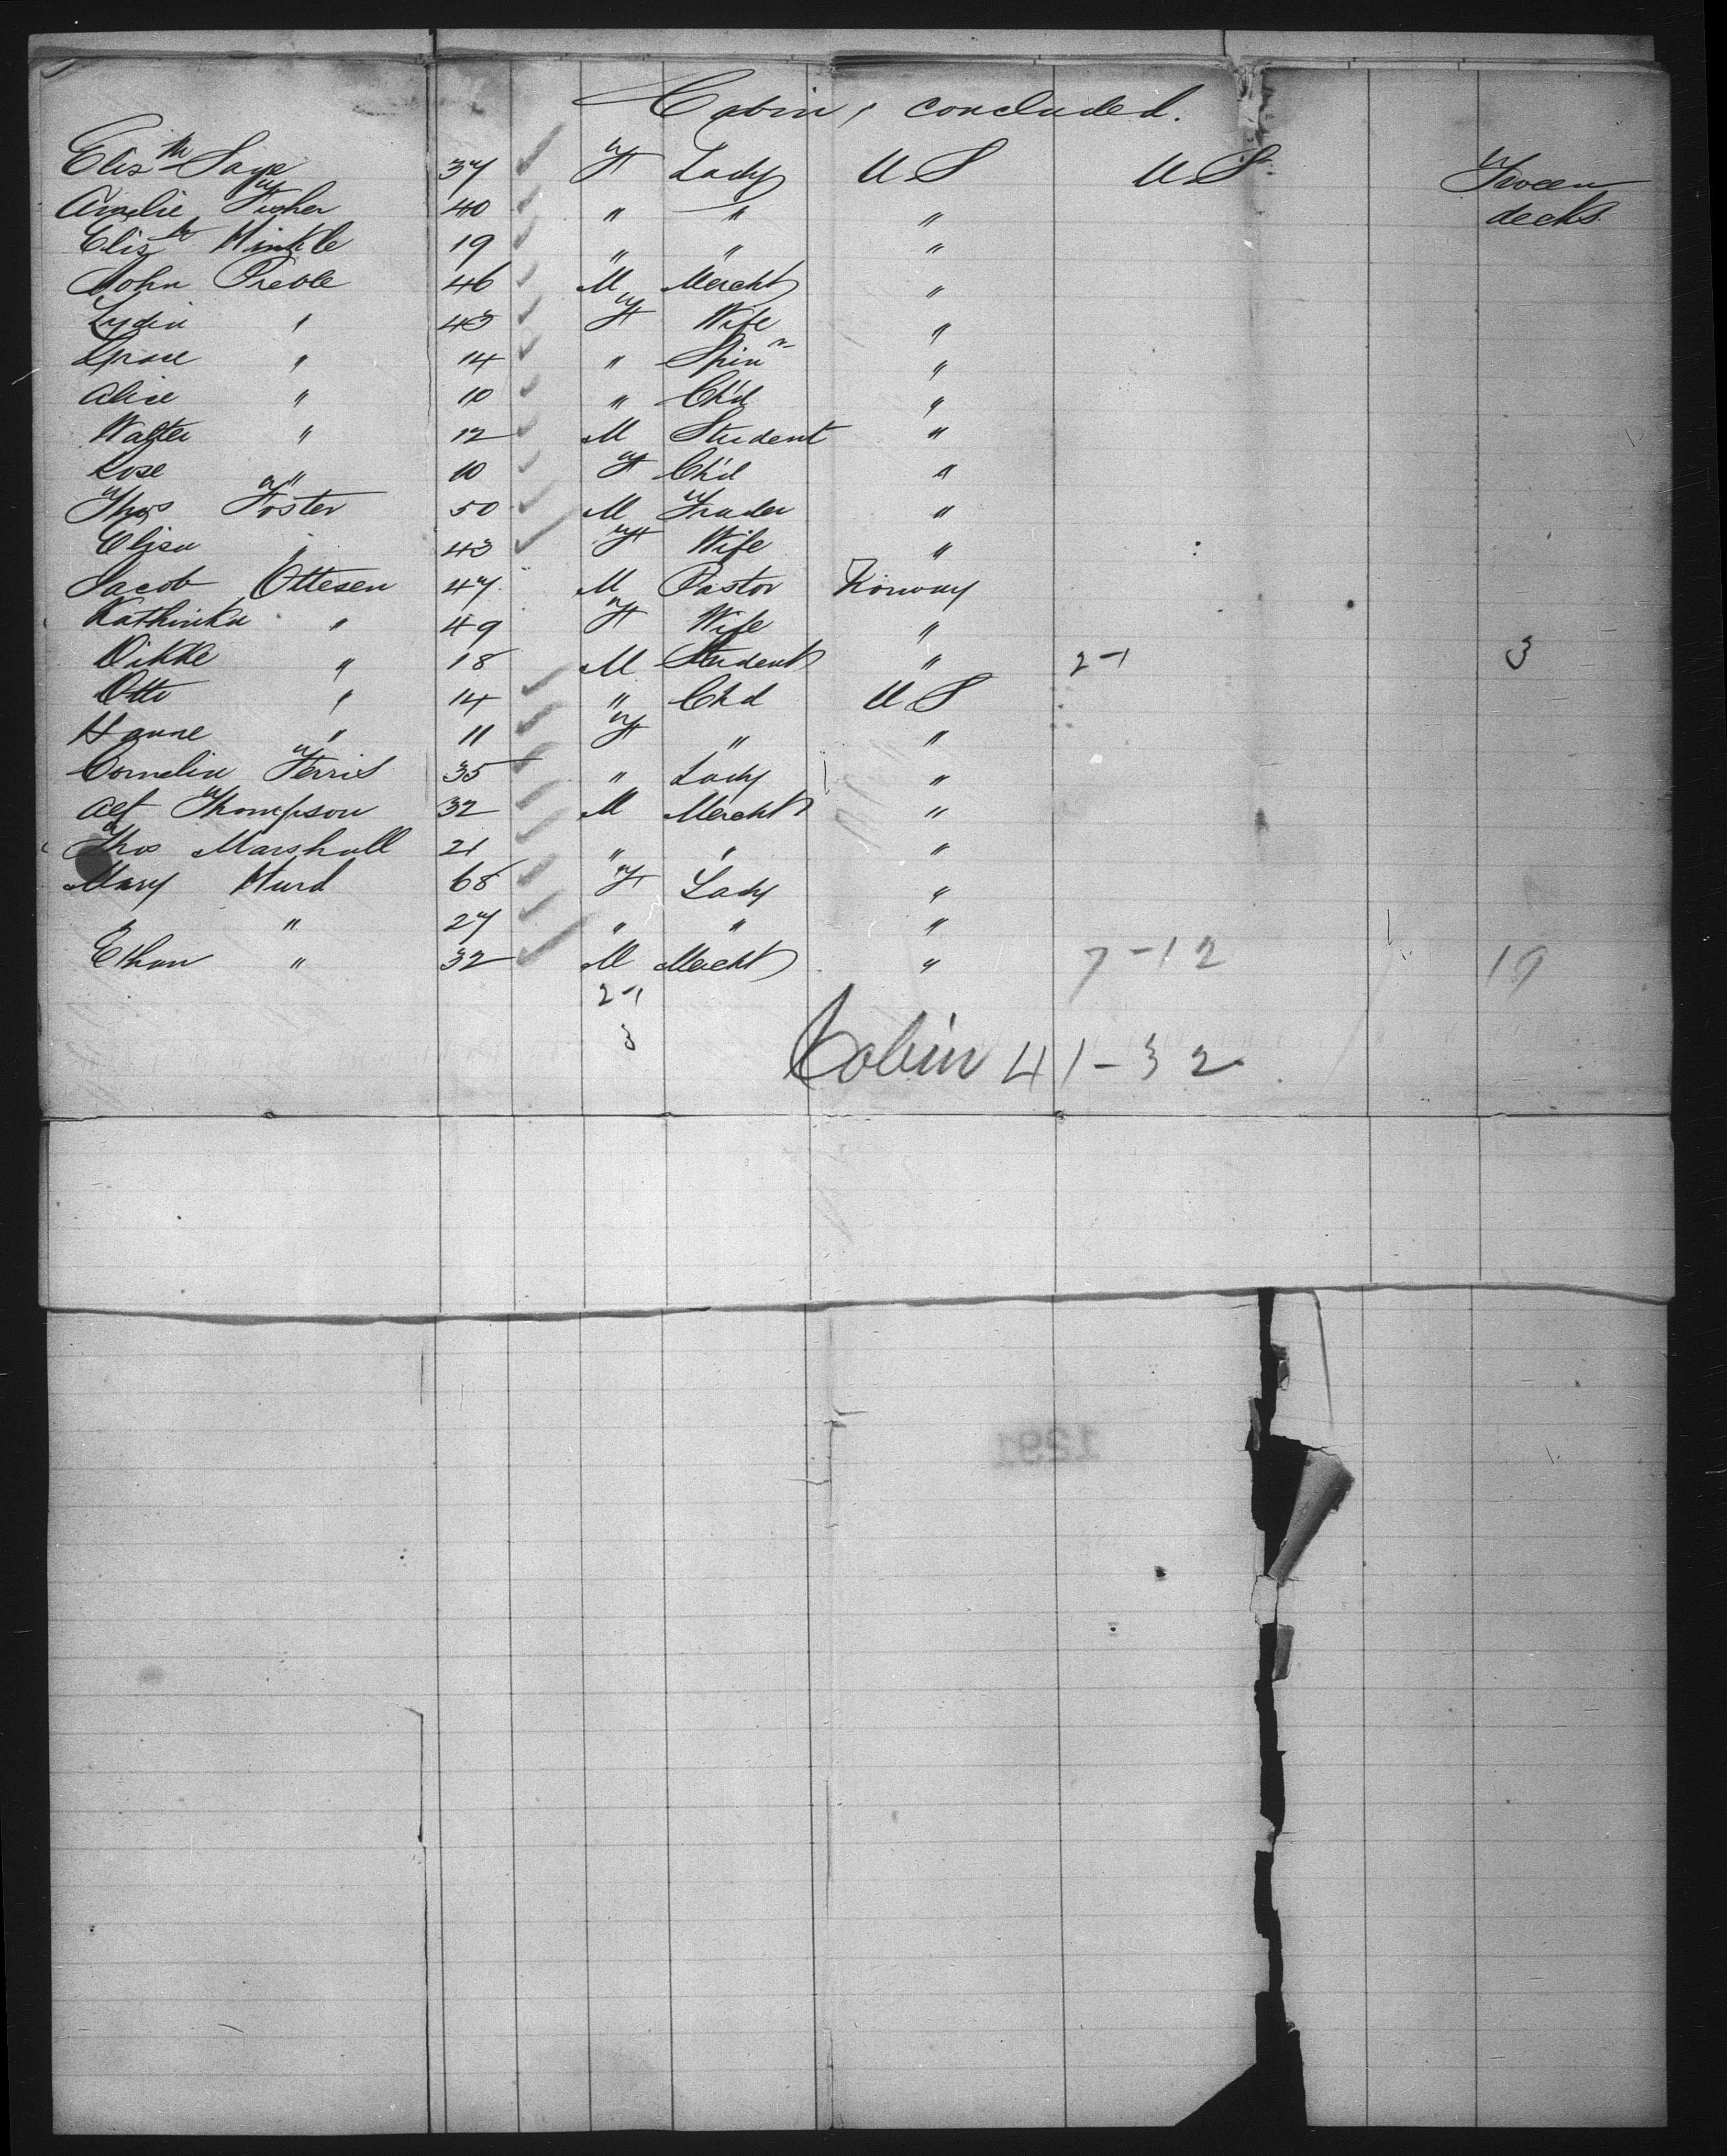 Cabin, concluded.
Elizth Sage 37 F Lady U S U. S. Tween
Amelie Fisher 40 " " " decks.
Elizth Hinkle 19 " " "
John Preble 46 M Mercht "
Lydia " 43 F Wife "
Grace " 14 " Spinr "
Alice " 10 " Ch'd "
Walter " 12 M Student "
Rose " 10 F Ch'd "
Thos Foster 50 M Trader "
Eliza " 43 F Wife "
Jacob Ottesen 47 M Pastor Norway
Kathinka " 49 F Wife "
" 18 M Student " 2-1 3
Otto " 14 " Chd U S
Hanne " 11 F " "
Cornelia Ferris 35 " Lady "
Alf Thompson 32 M Mercht "
Thos Marshall 21 " " "
Mary Hurd 68 F Lady "
" 27 " " "
Ethan " 32 M Mercht " 7-12 19
2-1
3
Cabin 41-32
1291